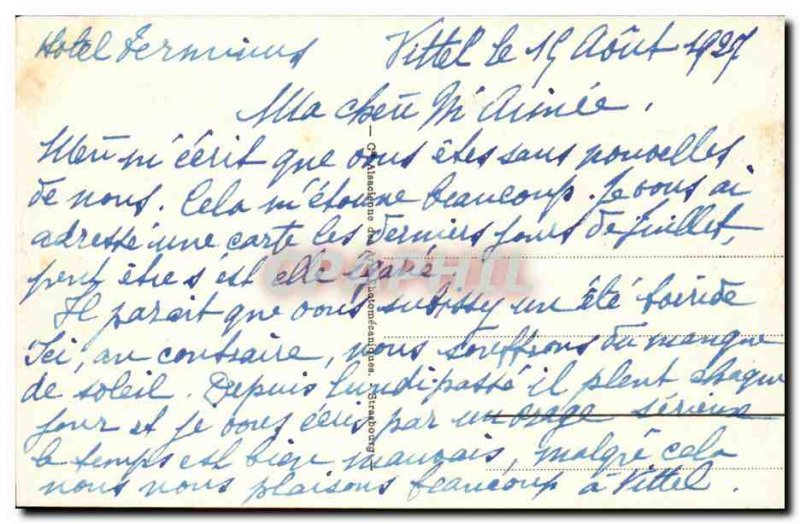 Hotel Terminus Vittel le 15 Août 1927
Ma chère M'Aimée,
Meu m'écrit que vous êtes sans nouvelles
de nous. Cela m'étonne beaucoup. Je vous ai
adressé une carte les derniers jours de Juillet,
peut être s'est elle égaré
Il parait que vous subissez un été torride
Ici, au contraire, nous souffrons du manque
de soleil. Depuis lundi passé il pleut chaque
jour et je vous écris par un orage sérieux
le temps est bien mauvais, malgré cela
nous nous plaisons beaucoup à Vittel.
Cie Alsacienne des Arts Photomécaniques. Strasbourg